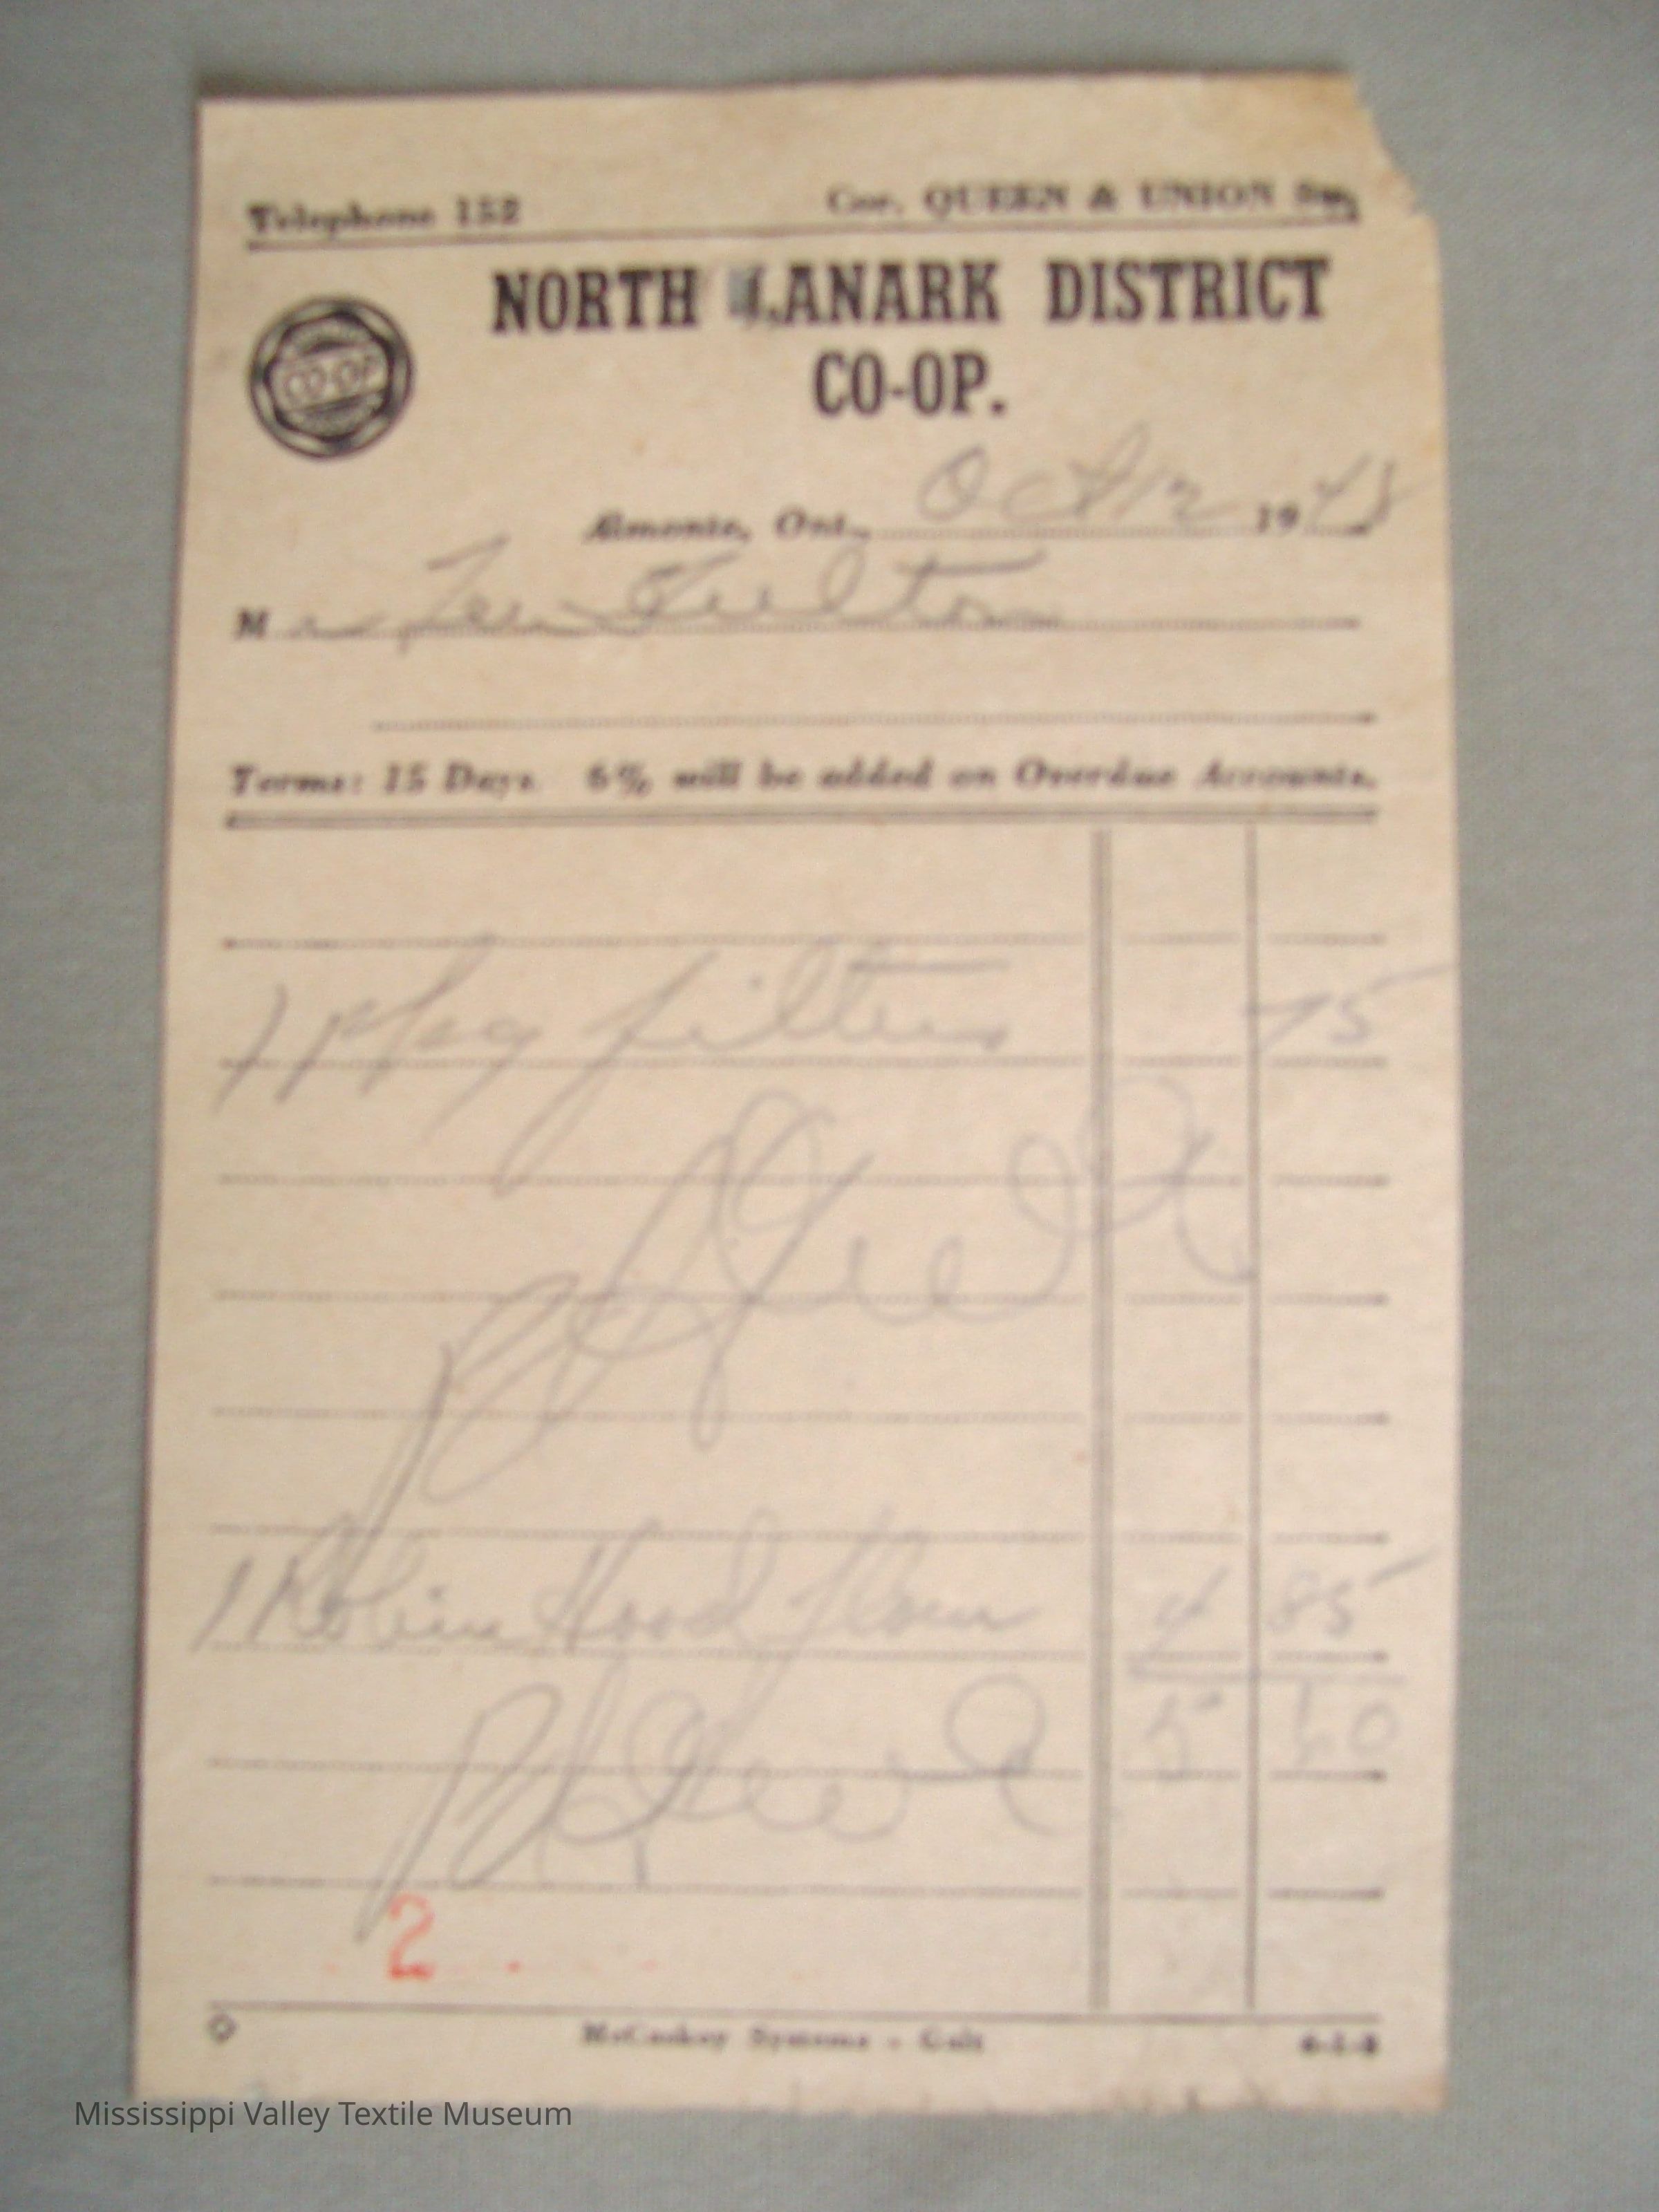 Telephone 152 Cor. QUEEN & UNION Sts.
NORTH LANARK DISTRICT
CO-OP.
CO-OP
Almonte, Ont., Oct 12 1948
Mr Fulton
Terms: 15 Days. 6% will be added on Overdue Accounts.
1 Pkg filters 75
1 Robin Hood flour 4 85
5 60
2
McCaskey Systems - Galt 6-1-8
Mississippi Valley Textile Museum